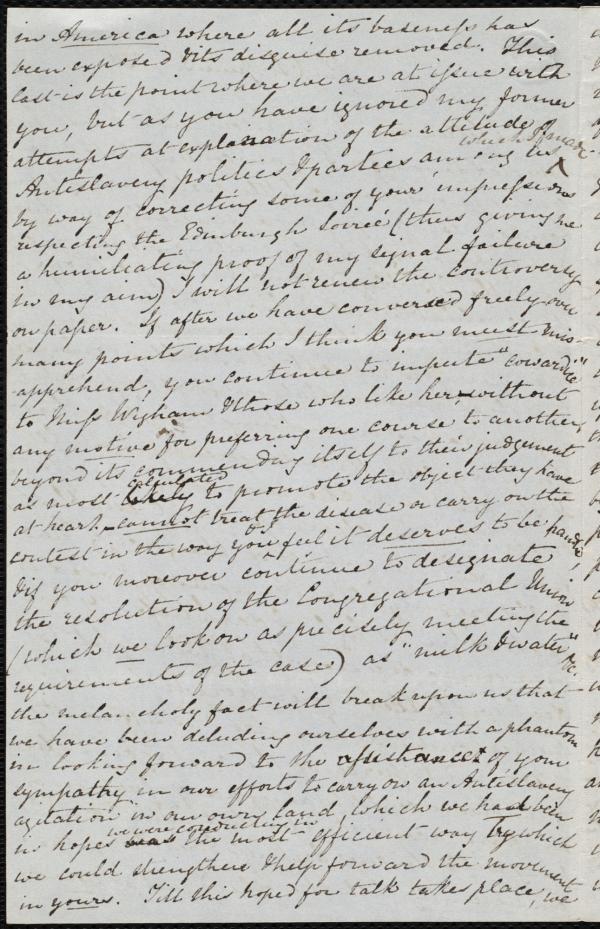 in America where all its baseness has
been exposed & its disguise removed. This
last is the point where we are at issue with
you, but as you have ignored my former
attempts at explanation of the attitude of
which I made
Antislavery politics & parties among us
by way of correcting some of your impressions
respecting the Edinburgh Soireé (thus giving me
a humiliating proof of my signal failure
in my aim) I will not renew the controversy
on paper. If after we have conversed freely over
many points which I think you must mis-
apprehend, you continue to impute "cowardice"
to Miss Wigham & those who like her, without
any motive for preferring one course to another,
beyond its commending itself to their judgement
calculated
as most likely to promote the object they have
at heart, cannot treat the disease or carry on the
contest in the way you feel it deserves to be
& if you moreover continue to designate
the resolution of the Congregational Union
(which we look on as precisely meeting the
requirements of the case) as "milk & water" &c.
the melancholy fact will break upon us that
we have been deluding ourselves with a phantom
in looking forward to the assistance of your
sympathy in our efforts to carry on an Antislavery
agitation in our own land, which we had been
we were conducting in
in hopes was the most efficient way by which
we could strengthen & help forward the movement
in yours. Till this hoped for talk takes place, we